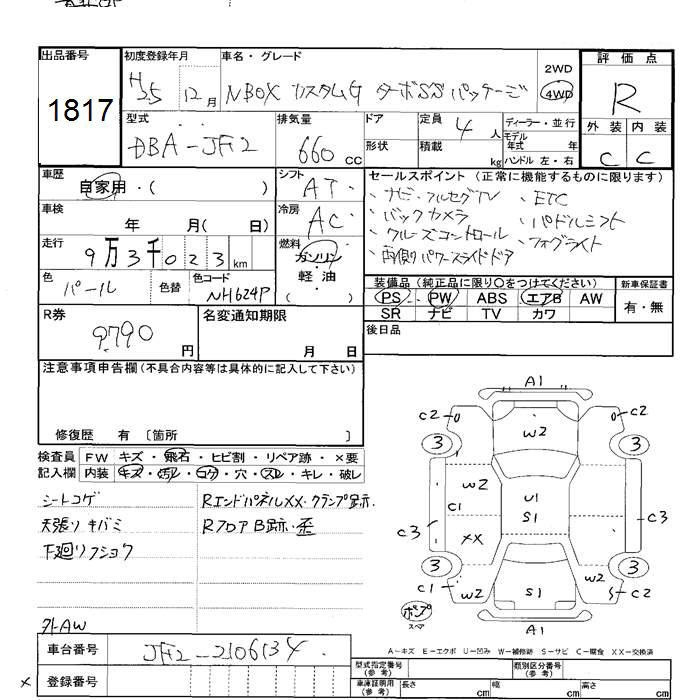 出品番号
1817
初度登録年月
H25 12月
車名・グレード
NBOX カスタムG ターボSSパッケージ
2WD
4WD
評価点
R
外装 内装
C C
型式
DBA-JF2
排気量
660 CC
ドア
形状
定員 4 人
積載 kg
ディーラー・並行
モデル年式 年
ハンドル 左・右
車歴
自家用・( )
シフト
AT
セールスポイント (正常に機能するものに限ります)
・ナビ・フルセグTV ・ETC
・バックカメラ ・パドルシフト
・クルーズコントロール ・フォグライト
・両側パワースライドドア
車検
年 月( 日)
冷房
AC
走行
9万3千023km
燃料
ガソリン
軽・油
( )
色
パール
色替
色コード
NH624P
装備品 (純正品に限り○をつけてください)
PS PW ABS エアB AW
SR ナビ TV カワ
新車保証書
有・無
R券
9790 円
名変通知期限
月 日
後日品
注意事項申告欄 (不具合内容等は具体的に記入して下さい)
修復歴 有 〔箇所 〕
検査員記入欄
FW キズ・飛石・ヒビ割・リペア跡・×要
内装 キズ・汚レ・コゲ・穴・スレ・キレ・破レ
シートコゲ
天張りキバミ
下廻りフショク
外AW
RエンドパネルXX・クランプ跡.
RフロアB跡・歪
A1
C2 W2 C2
3 3
W2 U1
C1 S1
C3 XX C3
3 3
C1 W2 S1 W2 C2
ポンプ
スペア
A1
A-キズ E-エクボ U-凹み W-補修跡 S-サビ C-腐食 XX-交換済
車台番号
JF2-2106134
×登録番号
型式指定番号(参考)
類別区分番号(参考)
車庫証明用(参考)
長さ cm 幅 cm 高さ cm